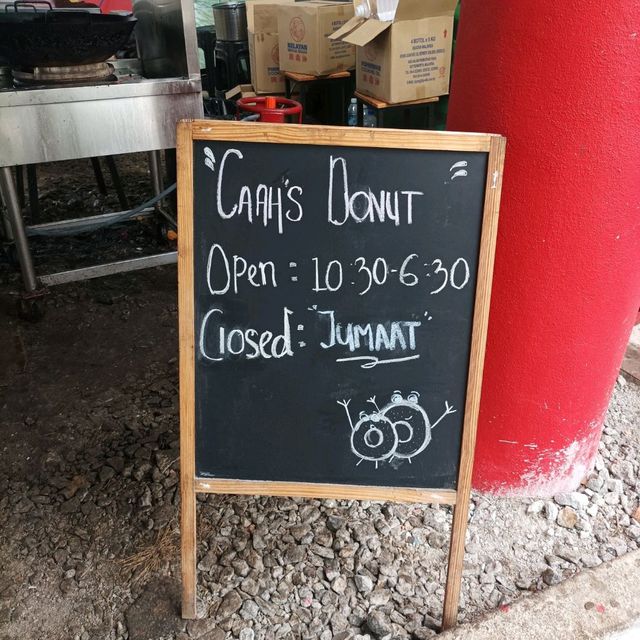 "CAAH'S DONUT"
Open : 10:30-6:30
Closed : "JUMAAT"